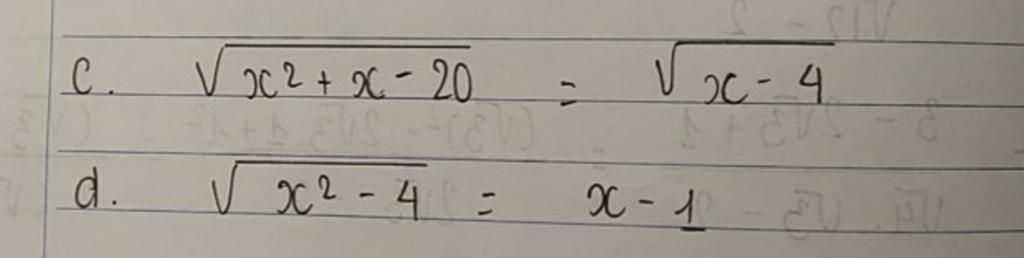 c. √(x² + x - 20) = √(x - 4)
d. √(x² - 4) = x - 1